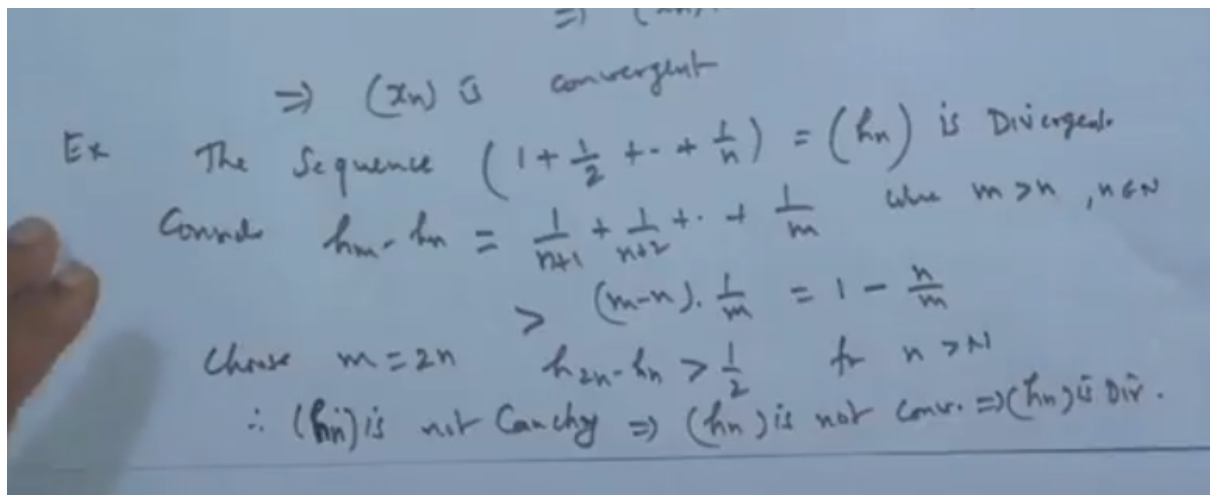 ⇒ (xn) is convergent
Ex The Sequence (1 + 1/2 + - + 1/n) = (hn) is Divergent.
hm - hn = 1/n+1 + 1/n+2 + · + 1/m where m > n , n ∈ N
> (m-n). 1/m = 1 - n/m
Choose m = 2n h2n - hn > 1/2 for n > N
∴ (hn) is not Cauchy ⇒ (hn) is not Conv. ⇒ (hn) is Div.